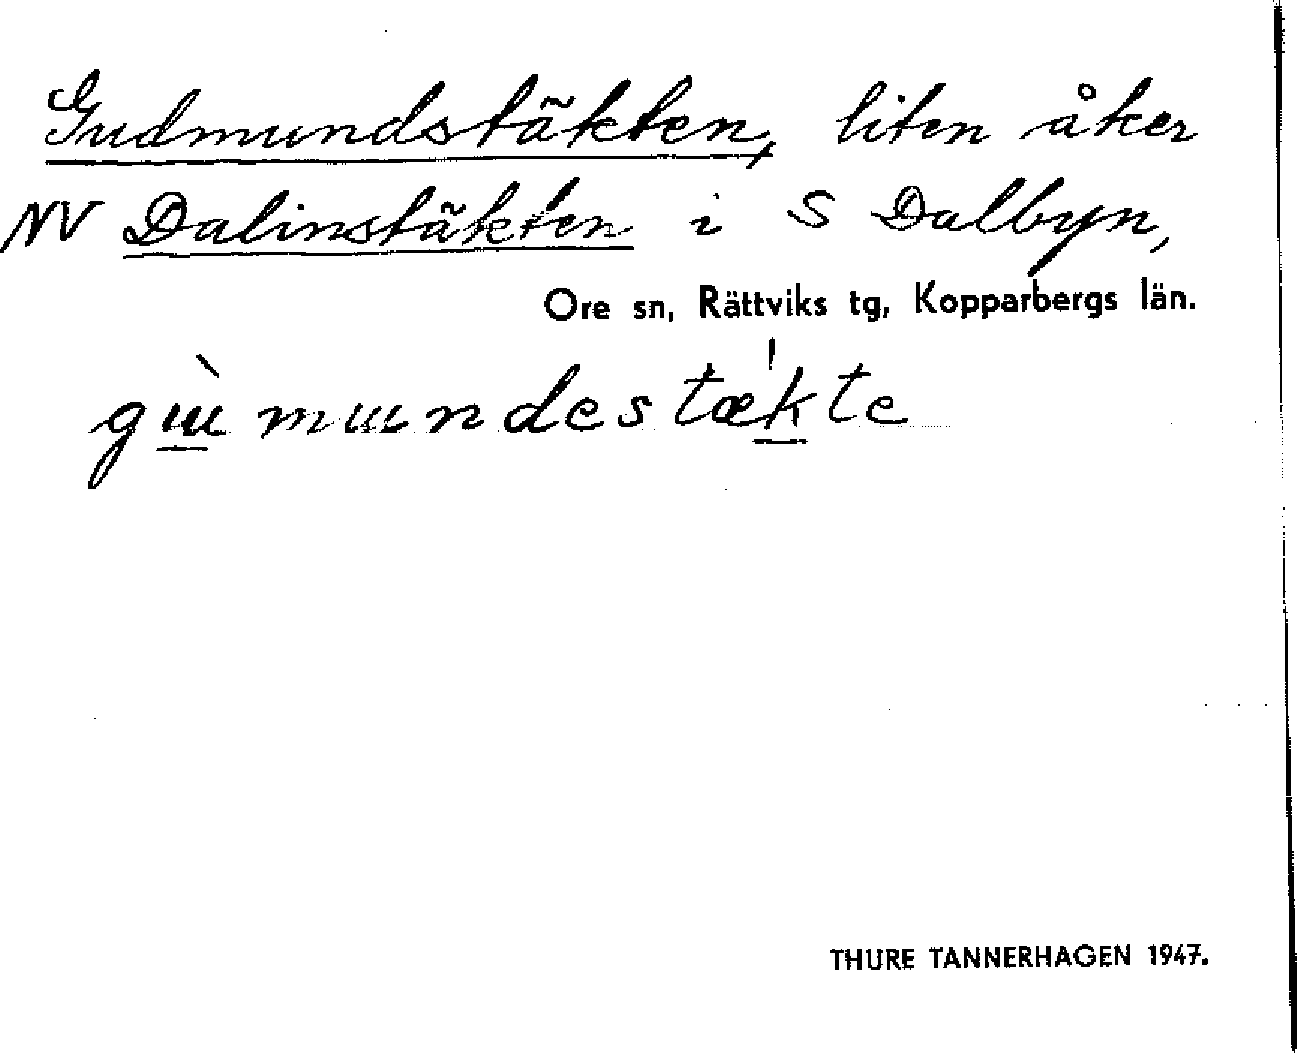 Gudmundstäkten, liten åker
NV Dalinstäkten i S Dalbyn,
Ore sn, Rättviks tg, Kopparbergs län.
gɯ̀mɯndestæ̍kte
THURE TANNERHAGEN 1947.